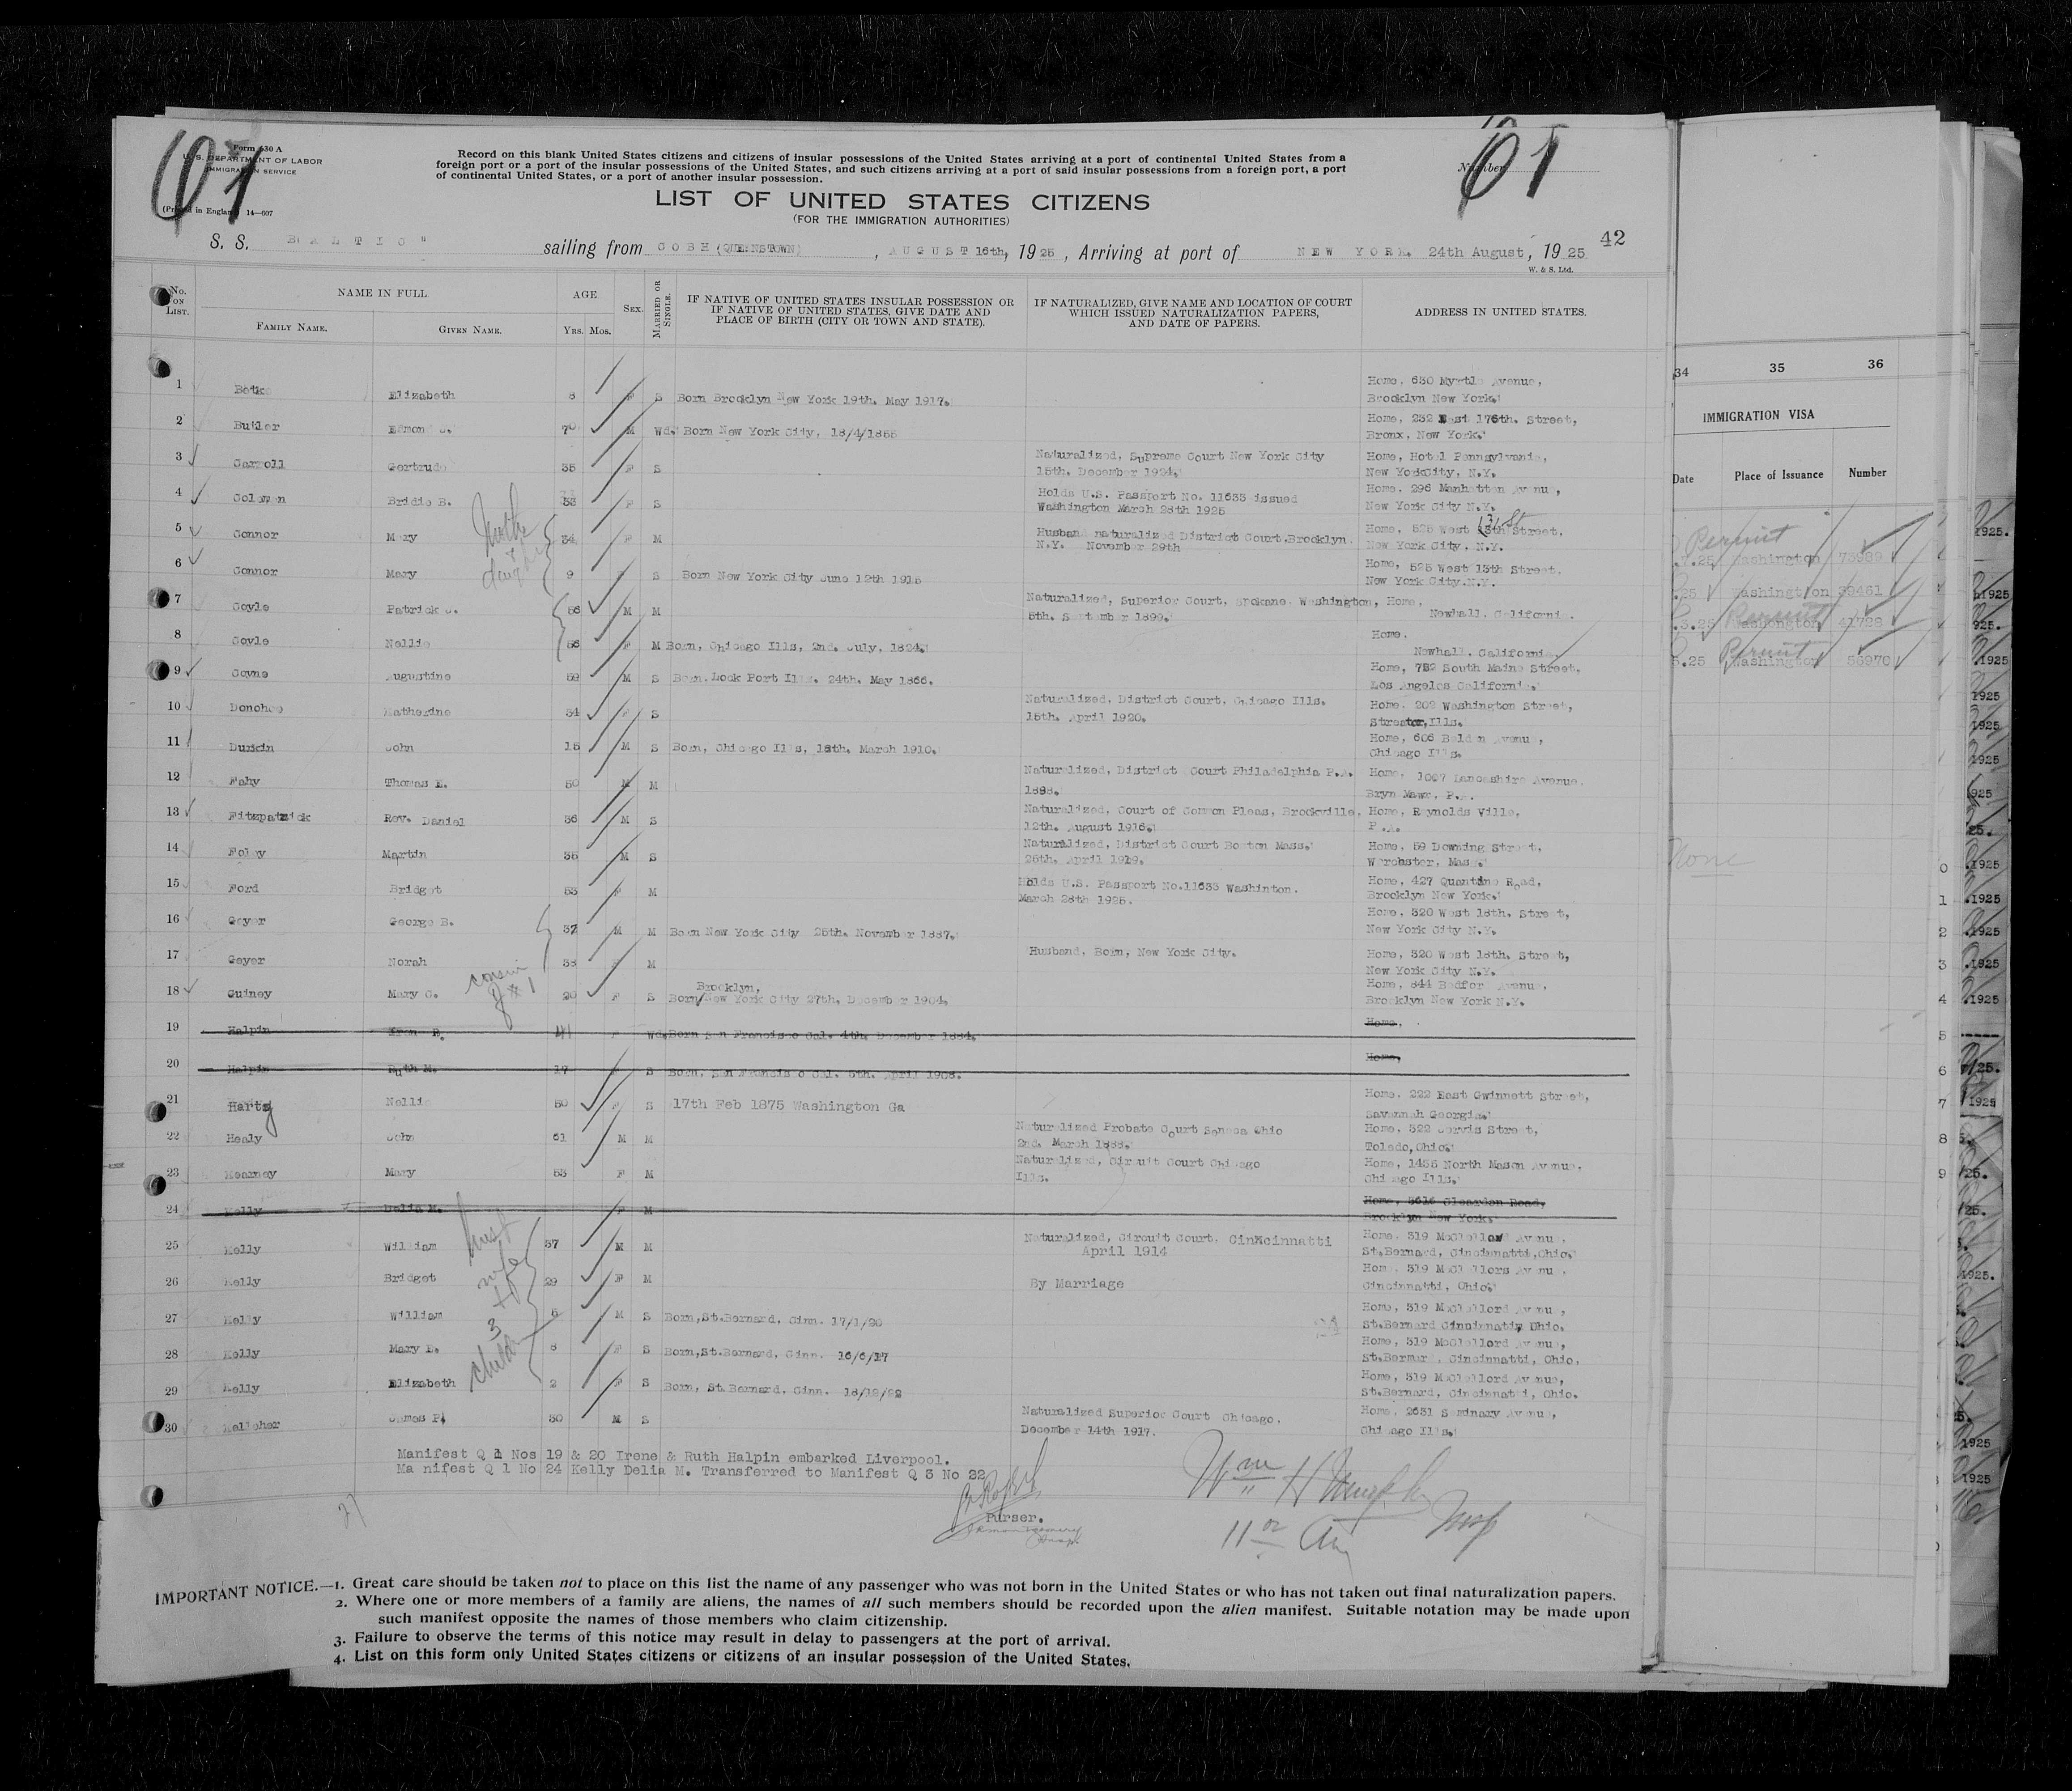 61
Form 630 A
U. S. DEPARTMENT OF LABOR
IMMIGRATION SERVICE
(Printed in England) 14—607
Record on this blank United States citizens and citizens of insular possessions of the United States arriving at a port of continental United States from a
foreign port or a port of the insular possessions of the United States, and such citizens arriving at a port of said insular possessions from a foreign port, a port
of continental United States, or a port of another insular possession.
Number 61
LIST OF UNITED STATES CITIZENS
(FOR THE IMMIGRATION AUTHORITIES)
42
S. S. BALTIC" sailing from COBH (QUEENSTOWN), AUGUST 16th, 1925, Arriving at port of NEW YORK, 24th August, 1925
W. & S. Ltd.
No. ON LIST. NAME IN FULL AGE SEX. MARRIED OR SINGLE. IF NATIVE OF UNITED STATES INSULAR POSSESSION OR IF NATIVE OF UNITED STATES, GIVE DATE AND PLACE OF BIRTH (CITY OR TOWN AND STATE). IF NATURALIZED, GIVE NAME AND LOCATION OF COURT WHICH ISSUED NATURALIZATION PAPERS, AND DATE OF PAPERS. ADDRESS IN UNITED STATES.
FAMILY NAME. GIVEN NAME. YRS. MOS.
1 Elizabeth 8 F S Born Brooklyn New York 19th. May 1917. Home, 630 Myrtle Avenue,
Brooklyn New York.
2 Butler Edmond J. 70 M Wd. Born New York City, 18/4/1855 Home, 232 East 176th. Street,
Bronx, New York.
3 Carroll Gertrude 35 F S Naturalized, Supreme Court New York City Home, Hotel Pennsylvania,
15th. December 1924. New YorkCity, N.Y.
4 Coleman Bridie B. 33 F S Holds U.S. Passport No. 11633 issued Home. 296 Manhattan Avenue,
Washington March 28th 1925 New York City N.Y.
5 Connor Mary 34 F M Husband naturalized District Court.Brooklyn. Home. 525 West 13th Street.
131 St
N.Y. November 29th New York City. N.Y.
6 Connor Mary 9 F S Born New York City June 12th 1916 Home, 525 West 13th Street.
New York City.N.Y.
Mother
+
daughter
7 Coyle Patrick J. 56 M M Naturalized, Superior Court. Spokane. Washington, Home.
5th. September 1899. Newhall. California.
8 Coyle Nellie 56 F M Born, Chicago Ills, 2nd. July, 1824. Home.
Newhall. California.
9 Coyne Augustine 59 M S Born, Lock Port Ills. 24th. May 1866. Home, 732 South Maine Street,
Los Angelos California.
10 Donohoe Katherine 34 F S Naturalized, District Court, Chicago Ills. Home. 202 Washington Street,
15th. April 1920. Streator,Ills.
11 Durkin John 15 M S Born, Chicago Ills, 18th. March 1910. Home, 606 Belden Avenue,
Chicago Ills.
12 Fahy Thomas E. 50 M M Naturalized, District Court Philadelphia P.A. Home, 1007 Lancashire Avenue.
1898. Bryn Mawr. P.A.
13 Fitzpatrick Rev. Daniel 36 M S Naturalized, Court of Common Pleas, Brockville, Home, Reynolds Ville,
12th. August 1916. P.A.
14 Foley Martin 35 M S Naturalized, District Court Boston Mass. Home, 59 Downing Street,
25th. April 1919. Worchster, Mass.
15 Ford Bridget 53 F M Holds U.S. Passport No.11633 Washinton. Home, 427 Quantino Road,
March 28th 1925. Brooklyn New York.
16 Geyer George B. 37 M M Born New York City 25th. November 1887. Home, 320 West 18th. Street,
New York City N.Y.
17 Geyer Norah 38 F M Husband, Born, New York City. Home, 320 West 18th. Street,
New York City N.Y.
cousin
of #1
18 Guiney Mary C. 20 F S Born/New York City 27th. December 1904. Home, 844 Bedford Avenue,
Brooklyn,
Brooklyn New York N.Y.
19 Halpin 41 F Wd. Born San Francisco Cal. 4th. December 1884. Home,
20 Halpin Ruth M. 17 F S Born, San Francisco Cal. 5th. April 1908. Home,
21 Harty Nellie 50 F S 17th Feb 1875 Washington Ga Home. 222 East Gwinnett Street,
Savannah Georgia.
22 Healy John 61 M M Naturalized Probate Court Seneca Ohio Home, 322 Jervis Street,
2nd. March 1888. Toledo,Ohio.
23 Kearney Mary 53 F M Naturalized, Circuit Court Chicago Home, 1435 North Mason Avenue,
Ills. Chicago Ills.
24 Kelly Delia M. F M Home, 3616 Road,
Brooklyn New York.
25 Kelly William 37 M M Naturalized, Circuit Court. Cincinnatti Home. 319 Avenue,
April 1914 St.Bernard, Cincinnatti,Ohio.
26 Kelly Bridget 29 F M By Marriage Home. 319 Avenue.
Cincinnatti, Ohio.
27 Kelly William 6 M S Born,St.Bernard. Cinn. 17/1/20 Home, 319 McClellord Avenue,
St.Bernard Cincinnatti, Ohio.
28 Kelly Mary E. 8 F S Born,St.Bernard, Cinn. 16/6/17 Home, 319 McClellord Avenue,
St.Bernard, Cincinnatti, Ohio.
29 Kelly Elizabeth 2 F S Born, St.Bernard. Cinn. 18/12/22 Home, 319 McClellord Avenue,
St.Bernard, Cincinnatti, Ohio.
wife
+
3
30 Kelleher James P. 30 M S Naturalized Superior Court Chicago. Home, 2631 Seminary Avenue,
December 14th 1917. Chicago Ills.
Manifest Q 1 Nos 19 & 20 Irene & Ruth Halpin embarked Liverpool.
Manifest Q 1 No 24 Kelly Delia M. Transferred to Manifest Q 3 No 22
Purser.
Wm H Murphy
IMPORTANT NOTICE.—1. Great care should be taken not to place on this list the name of any passenger who was not born in the United States or who has not taken out final naturalization papers.
2. Where one or more members of a family are aliens, the names of all such members should be recorded upon the alien manifest. Suitable notation may be made upon
such manifest opposite the names of those members who claim citizenship.
3. Failure to observe the terms of this notice may result in delay to passengers at the port of arrival.
4. List on this form only United States citizens or citizens of an insular possession of the United States.
34 35 36
IMMIGRATION VISA
Date Place of Issuance Number
Permit
Washington 73989
Washington 39461
Permit
Washington 41728
Permit
Washington 56970
None